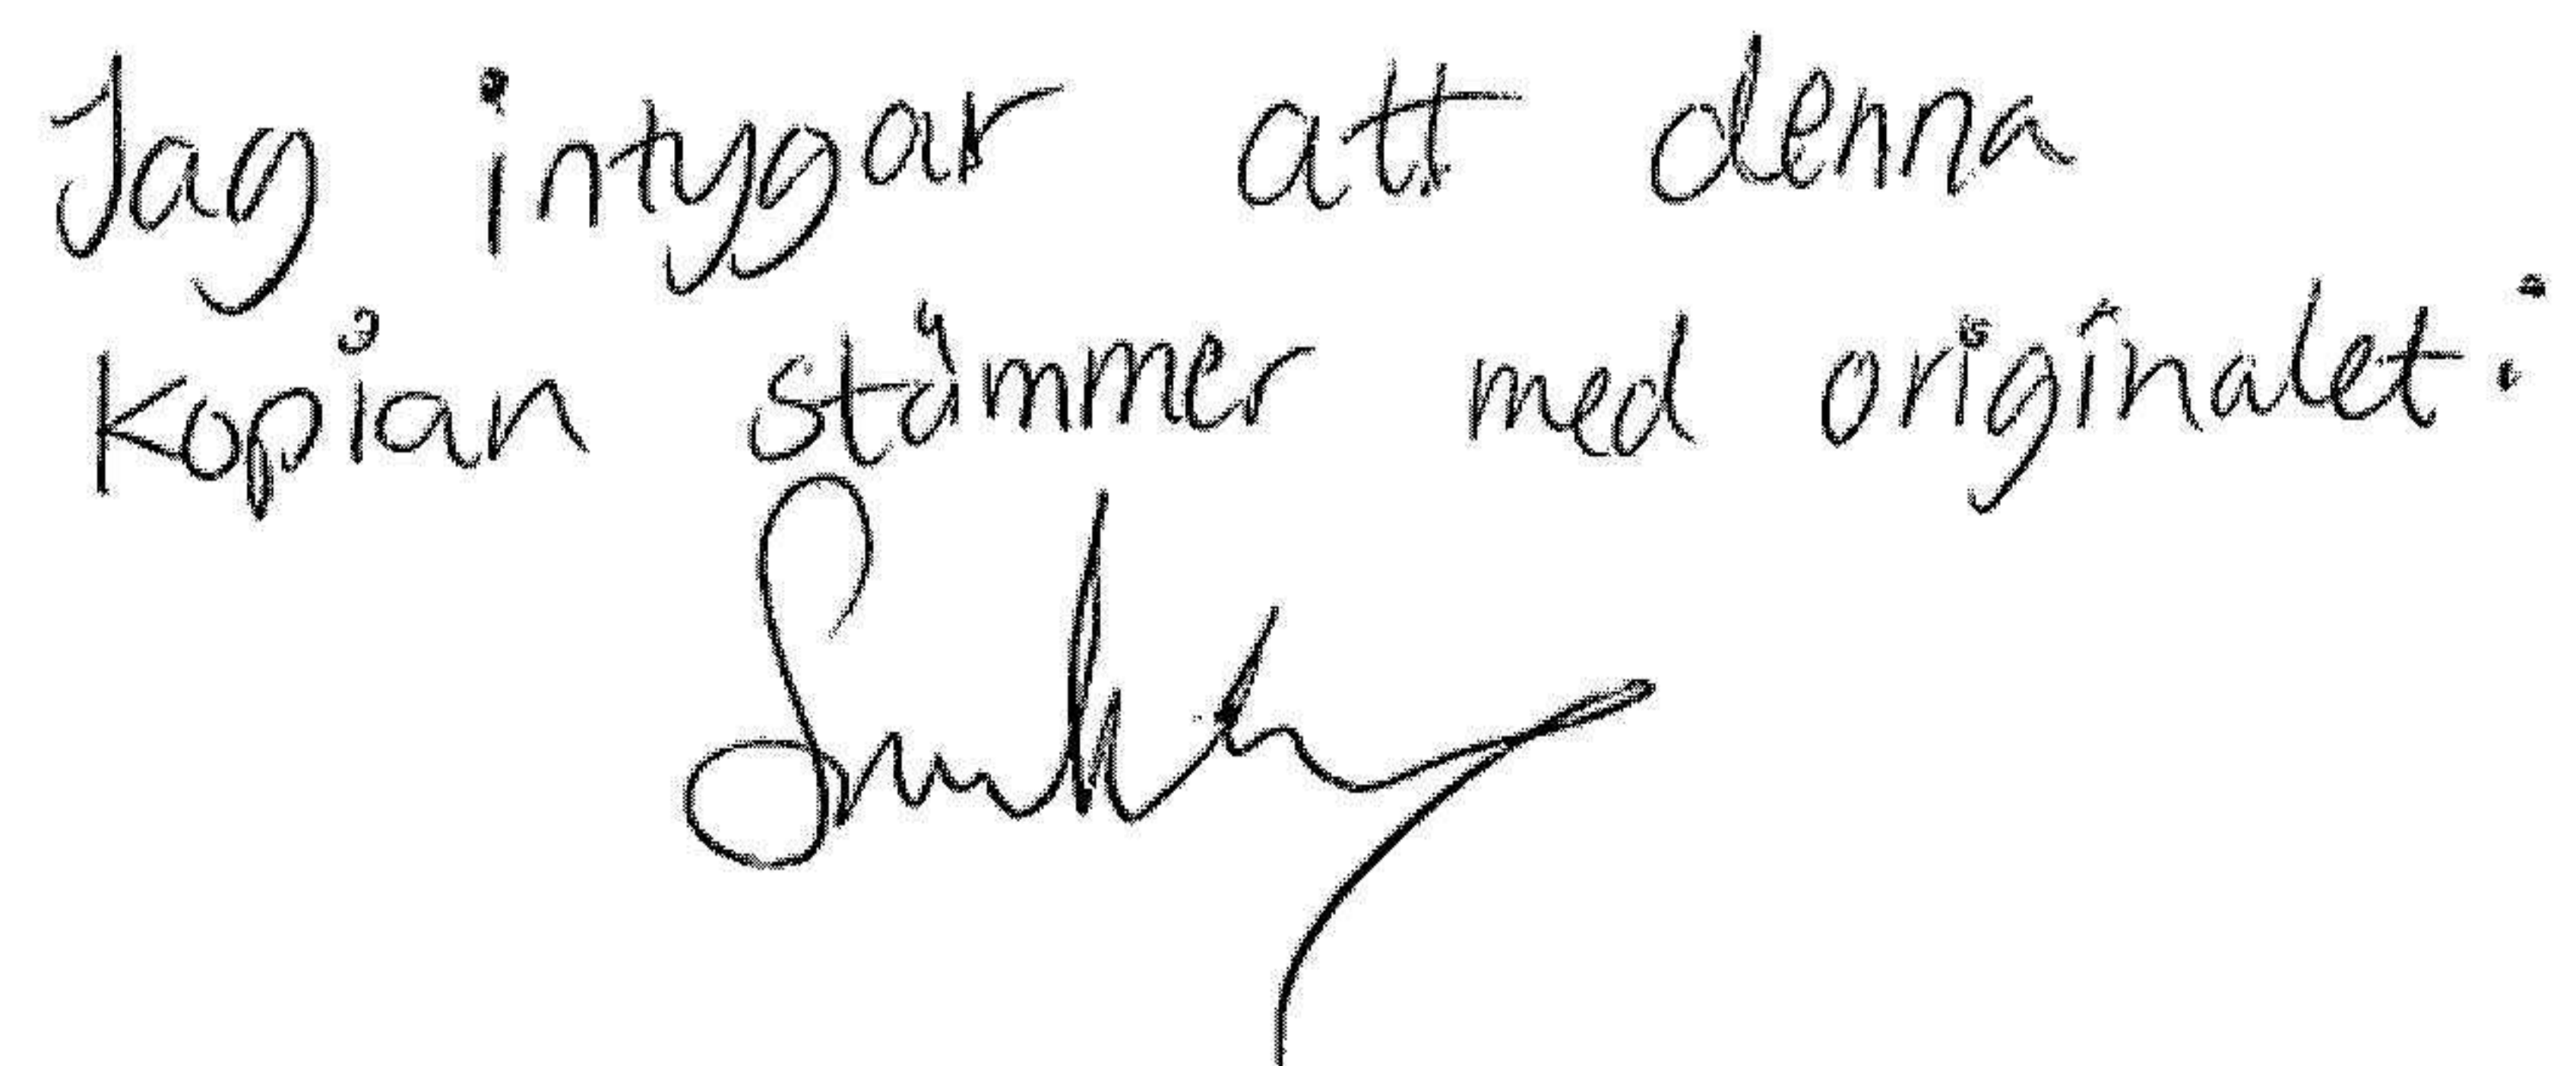 Jag intygar att denna
kopian stämmer med originalet: